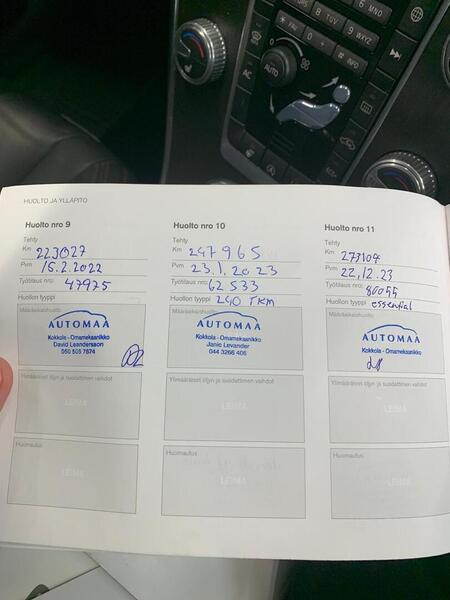 6 MNO
8 TUV
9 WXYZ
# INFO
AUTO
AC
HUOLTO JA YLLÄPITO
Huolto nro 9
Tehty
Km 223027
Pvm 15.2.2022
Työtilaus nro: 47975
Huollon tyyppi
Määräaikaishuolto
AUTOMAA
Kokkola - Omamekaanikko
David Leandersson
050 505 7874
Ylimääräiset öljyn ja suodattimen vaihdot
LEIMA
Huomautus
LEIMA
Huolto nro 10
Tehty
Km 247965
Pvm 23.1.2023
Työtilaus nro: 62533
Huollon tyyppi 240 TKM
Määräaikaishuolto
AUTOMAA
Kokkola - Omamekaanikko
Janic Levander
044 3266 406
Ylimääräiset öljyn ja suodattimen vaihdot
LEIMA
Huomautus
LEIMA
Huolto nro 11
Tehty
Km 273104
Pvm 22.12.23
Työtilaus nro: 80055
Huollon tyyppi essential
Määräaikaishuolto
AUTOMAA
Kokkola - Omamekaanikko
Ylimääräiset öljyn ja suodattimen vaihdot
LEIMA
Huomautus
LEIMA